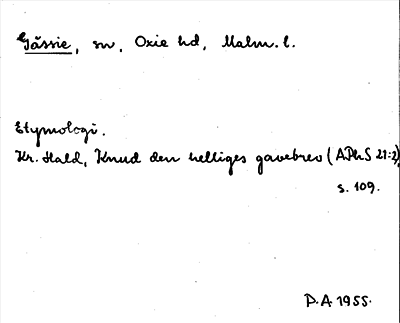 Gässie, sn, Oxie hd, Malm. l.
Etymologi.
Kr. Hald, Knud den helliges gavebrev (APhS 21:2),
s. 109.
P.A. 1955.